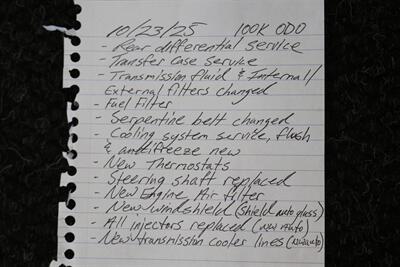 10/23/25 100K ODO
- Rear differential service
- Transfer case service
- Transmission fluid & Internal/
External filters changed
- Fuel Filter
- Serpentine belt changed
- Cooling system service, flush
& antifreeze new
- New Thermostats
- Steering shaft replaced
- New Engine Air filter
- New windshield (Shield auto glass)
- All injectors replaced (NW Auto)
- New transmission cooler lines (NW auto)